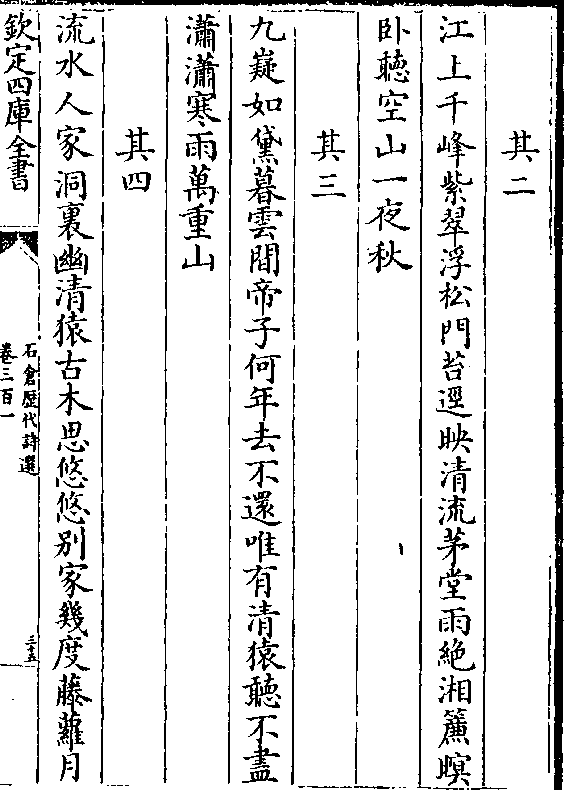 其二
江上千峰紫翠浮松門苔逕映清流茅堂雨絶湘簾暝
卧聴空山一夜秋
其三
九嶷如黛暮雲間帝子何年去不還唯有清猿聴不盡
瀟瀟寒雨萬重山
其四
流水人家洞裏幽清猿古木思悠悠别家幾度藤蘿月
欽定四庫全書
石倉歴代詩選
卷三百一
三十五